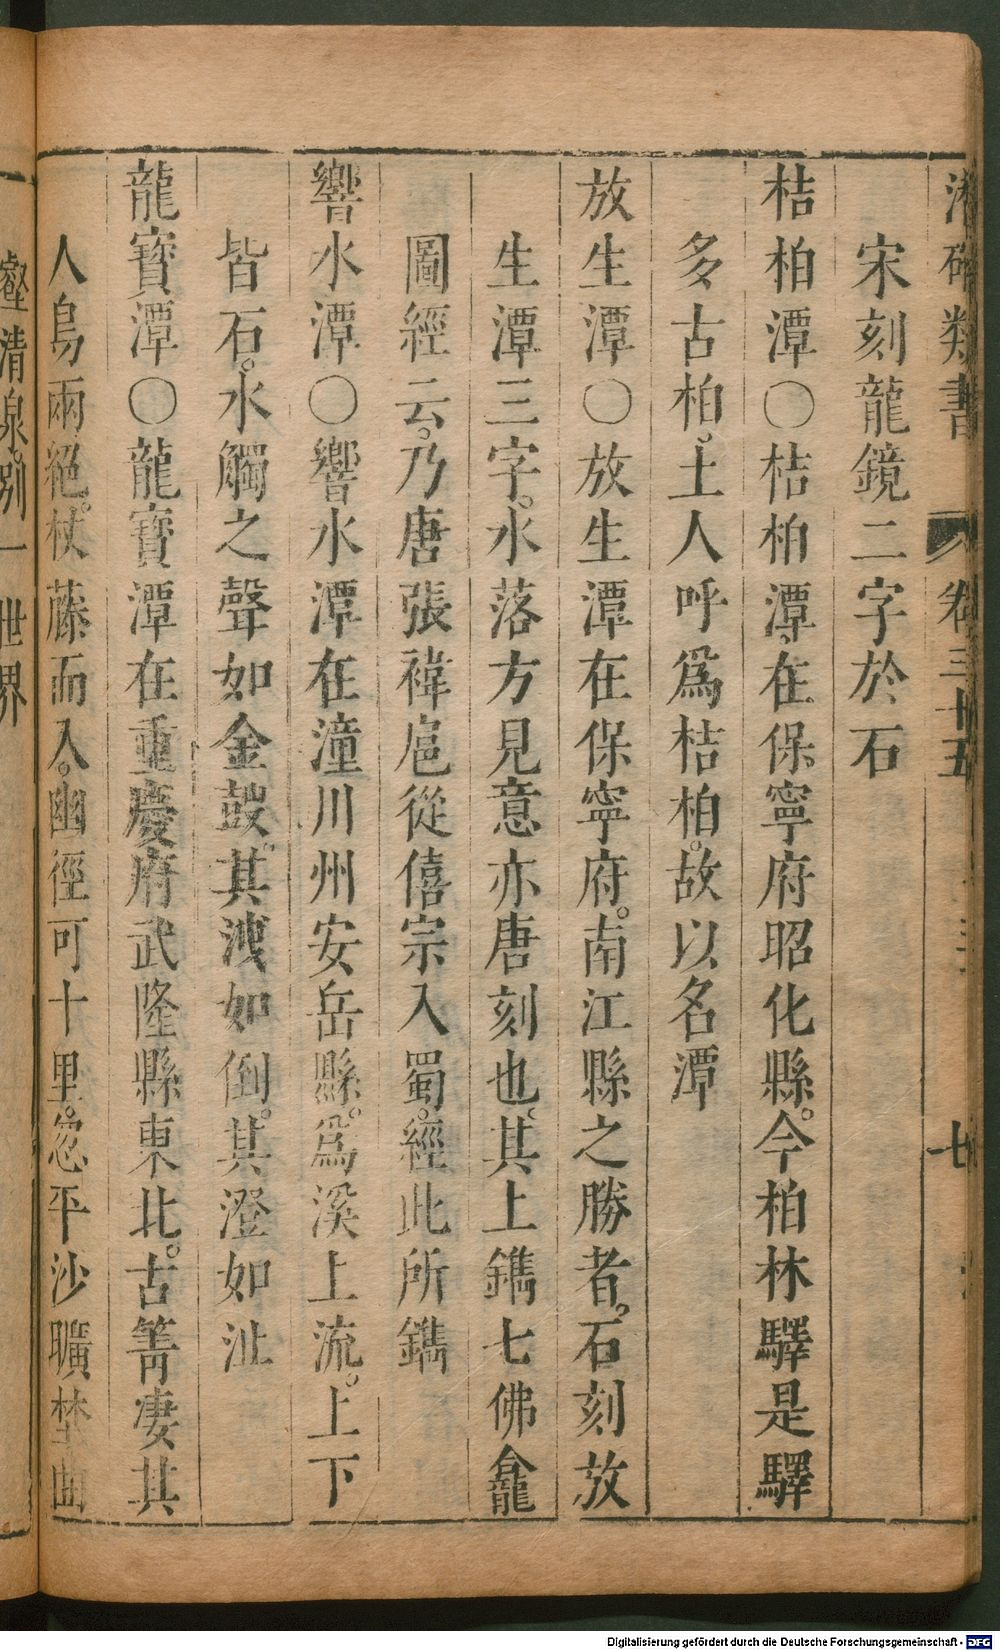 潛確類書 卷三十五 七
宋刻龍鏡二字於石
桔柏潭○桔柏潭在保寧府昭化縣今柏林驛是驛
多古柏土人呼爲桔柏故以名潭
放生潭○放生潭在保寧府南江縣之勝者石刻放
生潭三字水落方見意亦唐刻也其上鐫七佛龕
圖經云乃唐張褘扈從僖宗入蜀經此所鐫
響水潭○響水潭在潼川州安岳縣爲溪上流上下
皆石水觸之聲如金鼓其洩如倒其澄如沚
龍寶潭○龍寶潭在重慶府武隆縣東北古箐凄其
人鳥兩絕杖藤而入幽徑可十里忽平沙曠埜曲
壑清泉別一世界
Digitalisierung gefördert durch die Deutsche Forschungsgemeinschaft - DFG